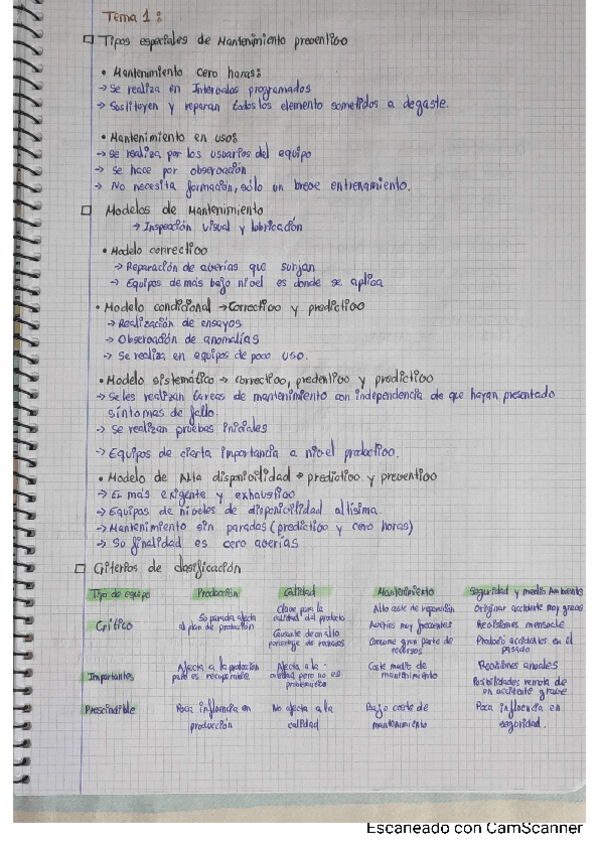 Tema 1:
Tipos especiales de Mantenimiento preventivo
• Mantenimiento cero horas:
→ Se realiza en Intervalos programados
→ Sustituyen y reparan todos los elemento sometidos a degaste.
• Mantenimiento en uso:
→ Se realiza por los usuarios del equipo
→ Se hace por observación
→ No necesita formación, sólo un breve entrenamiento.
Modelos de Mantenimiento
→ Inspeación visual y lubricación
• Modelo correctivo
→ Reparación de averías que surjan
→ Equipos de más bajo nivel es donde se aplica
• Modelo condicional → Correctivo y predictivo
→ Realización de ensayos
→ Observación de anomalías
→ Se realiza en equipos de poco uso.
• Modelo sistemático → correctivo, preventivo y predictivo
→ Se les realizan tareas de mantenimiento con independencia de que hayan presentado
síntomas de fallo.
→ Se realizan pruebas iniciales
→ Equipos de cierta importancia a nivel productivo.
• Modelo de Alta disponibilidad → predictivo y preventivo
→ El más exigente y exhaustivo
→ Equipos de niveles de disponibilidad altísima.
→ Mantenimiento sin paradas (predictivo y cero horas)
→ Su finalidad es cero averías
Criterios de clasificación
Tipo de equipo Producción Calidad Mantenimiento Seguridad y medio Ambiente
Crítico
Su parada afecta
al plan de producción
Clave para la
calidad del producto
Causante de un alto
porcentaje de rechazos
Alto coste de reparación
Averías muy frecuentes
Consume gran parte de
recursos
Originar accidente muy grave
Revisiones mensuales
Probado accidentes en el
pasado
Importantes
Afecta a la producción
pero es recuperable
Afecta a la
calidad pero no es
problemático
Coste medio de
mantenimiento
Revisiones anuales
Posibilidades remota de
un accidente grave
Prescindible
Poca influencia en
producción
No afecta a la
calidad
Bajo coste de
mantenimiento
Poca influencia en
seguridad.
Escaneado con CamScanner